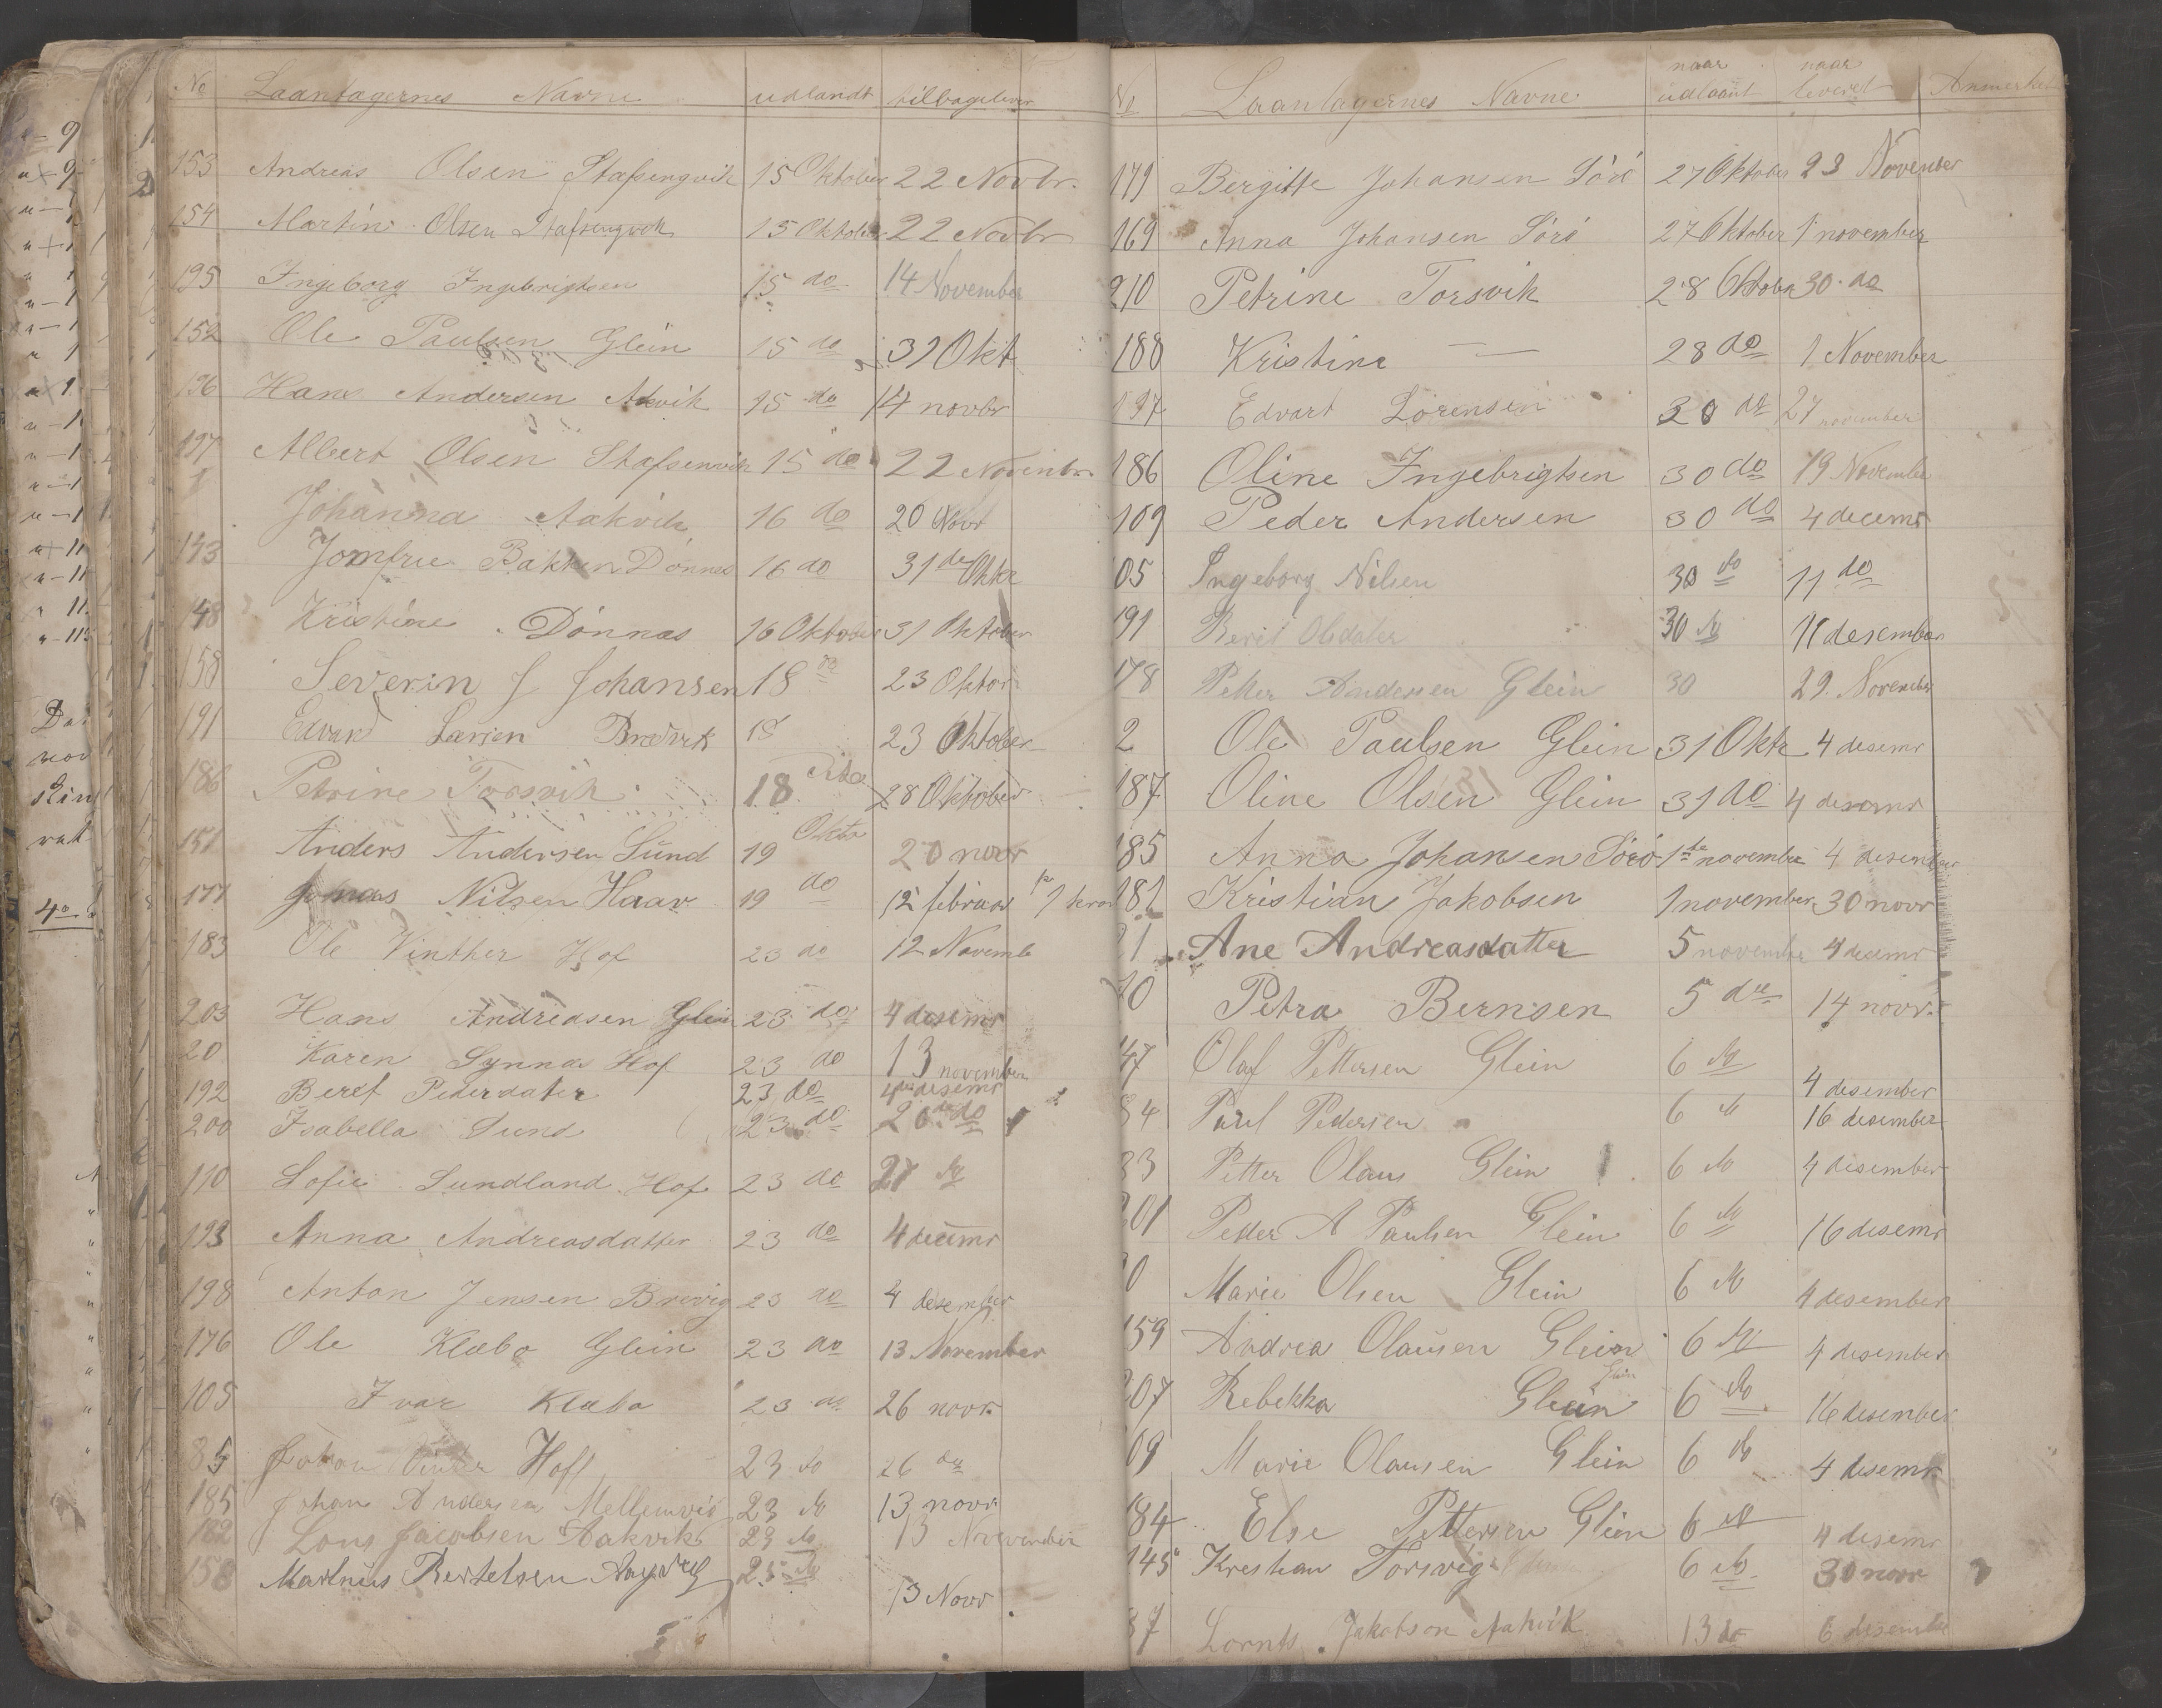 No Laantagernes Navne udlandt tilbagelever
153 Andreas Olsen Stafsengvik 15 Oktober 22 Novbr.
154 Martin Olsen Stafsengvik 15 Oktober 22 Novbr
195 Ingeborg Ingebrigtsen 15 do 14 November
152 Ole Paulsen Glein 15 do 31 Okt
196 Hans Andersen Akvik 15 do 14 novbr
197 Albert Olsen Stafsenvik 15 do 22 Novembr
Johanna Aakvik 16 do 20 Novr
143 Jomfrue Bakken Dönnes 16 do 31 de Oktr
148 Kristine Dönnas 16 Oktober 31 Oktober
158 Severin J Johansen 18 do 23 Oktor
191 Edvard Larsen Bredvik 18 23 Oktober
186 Petrine Torsvik 18 28 Oktober
151 Anders Andersen Sund 19 Oktr 20 novr
177 Jonas Nilsen Haav 19 do 12 februar 1 kron
183 Ole Vinther Hof 23 do 12 Novemb
203 Hans Andreasen Glein 23 do 4 desemr
20 Karen Synna Hof 23 do 13 november
192 Beret Pederdater 23 do 4 desemr
200 Isabella Sund 23 do 20 do
110 Sofie Sundland Hof 23 do 27 do
193 Anna Andreasdatter 23 do 4 decemr
198 Anton Jensen Brevig 23 do 4 desember
176 Ole Klæbo Glein 23 do 13 November
105 Ivar Klæbo 23 do 26 novr.
85 Johan Vinter Hoff 23 do 26 do
185 Johan Andersen Mellemvig 23 do 13 novr
182 Lons Jacobsen Aakvik 23 do 13 November
158 Martnus Bertelsen 25 do 13 Novr
No Laantagernes Navne naar udlaant naar leveret Anmerkn
179 Bergitte Johansen Sörö 27 Oktober 23 November
169 Anna Johansen Sörö 27 Oktober 1 november
210 Petrine Torsvik 28 Oktober 30 do
188 Kristine — 28 do 1 November
197 Edvart Lorensen 30 do 27 november
186 Oline Ingebrigtsen 30 do 19 November
109 Peder Andersen 30 do 4 decemr
05 Ingeborg Nilsen 30 do 11 do
191 Berit Olsdater 30 do 11 desember
178 Petter Andersen Glein 30 29. November
2 Ole Paulsen Glein 31 Oktr 4 desemr
187 Oline Olsen Glein 31 do 4 desemr
185 Anna Johansen Sörö 1 ste november 4 desember
181 Kristian Jakobsen 1 november 30 novr
21 Ane Andreasdatter 5 november 4 decemr
10 Petra Bernsen 5 de 14 novr.
47 Olaf Pettersen Glein 6 do 4 desember
84 Paul Pedersen 6 do 16 desember
83 Petter Olaus Glein 6 do 4 desember
201 Peder A Paulsen Glein 6 do 16 desemr
0 Marie Olsen Glein 6 do 4 desember
159 Andrea Olausen Glein 6 do 4 desember
207 Rebekka Glein 6 do 16 desember
09 Marie Olausen Glein 6 do 4 desemr
184 Else Pettersen Glein 6 do 4 desemr
145 Krestian Torsvig 6 do 30 novr
87 Lornts Jakobson Aakvik 13 do 6 desember